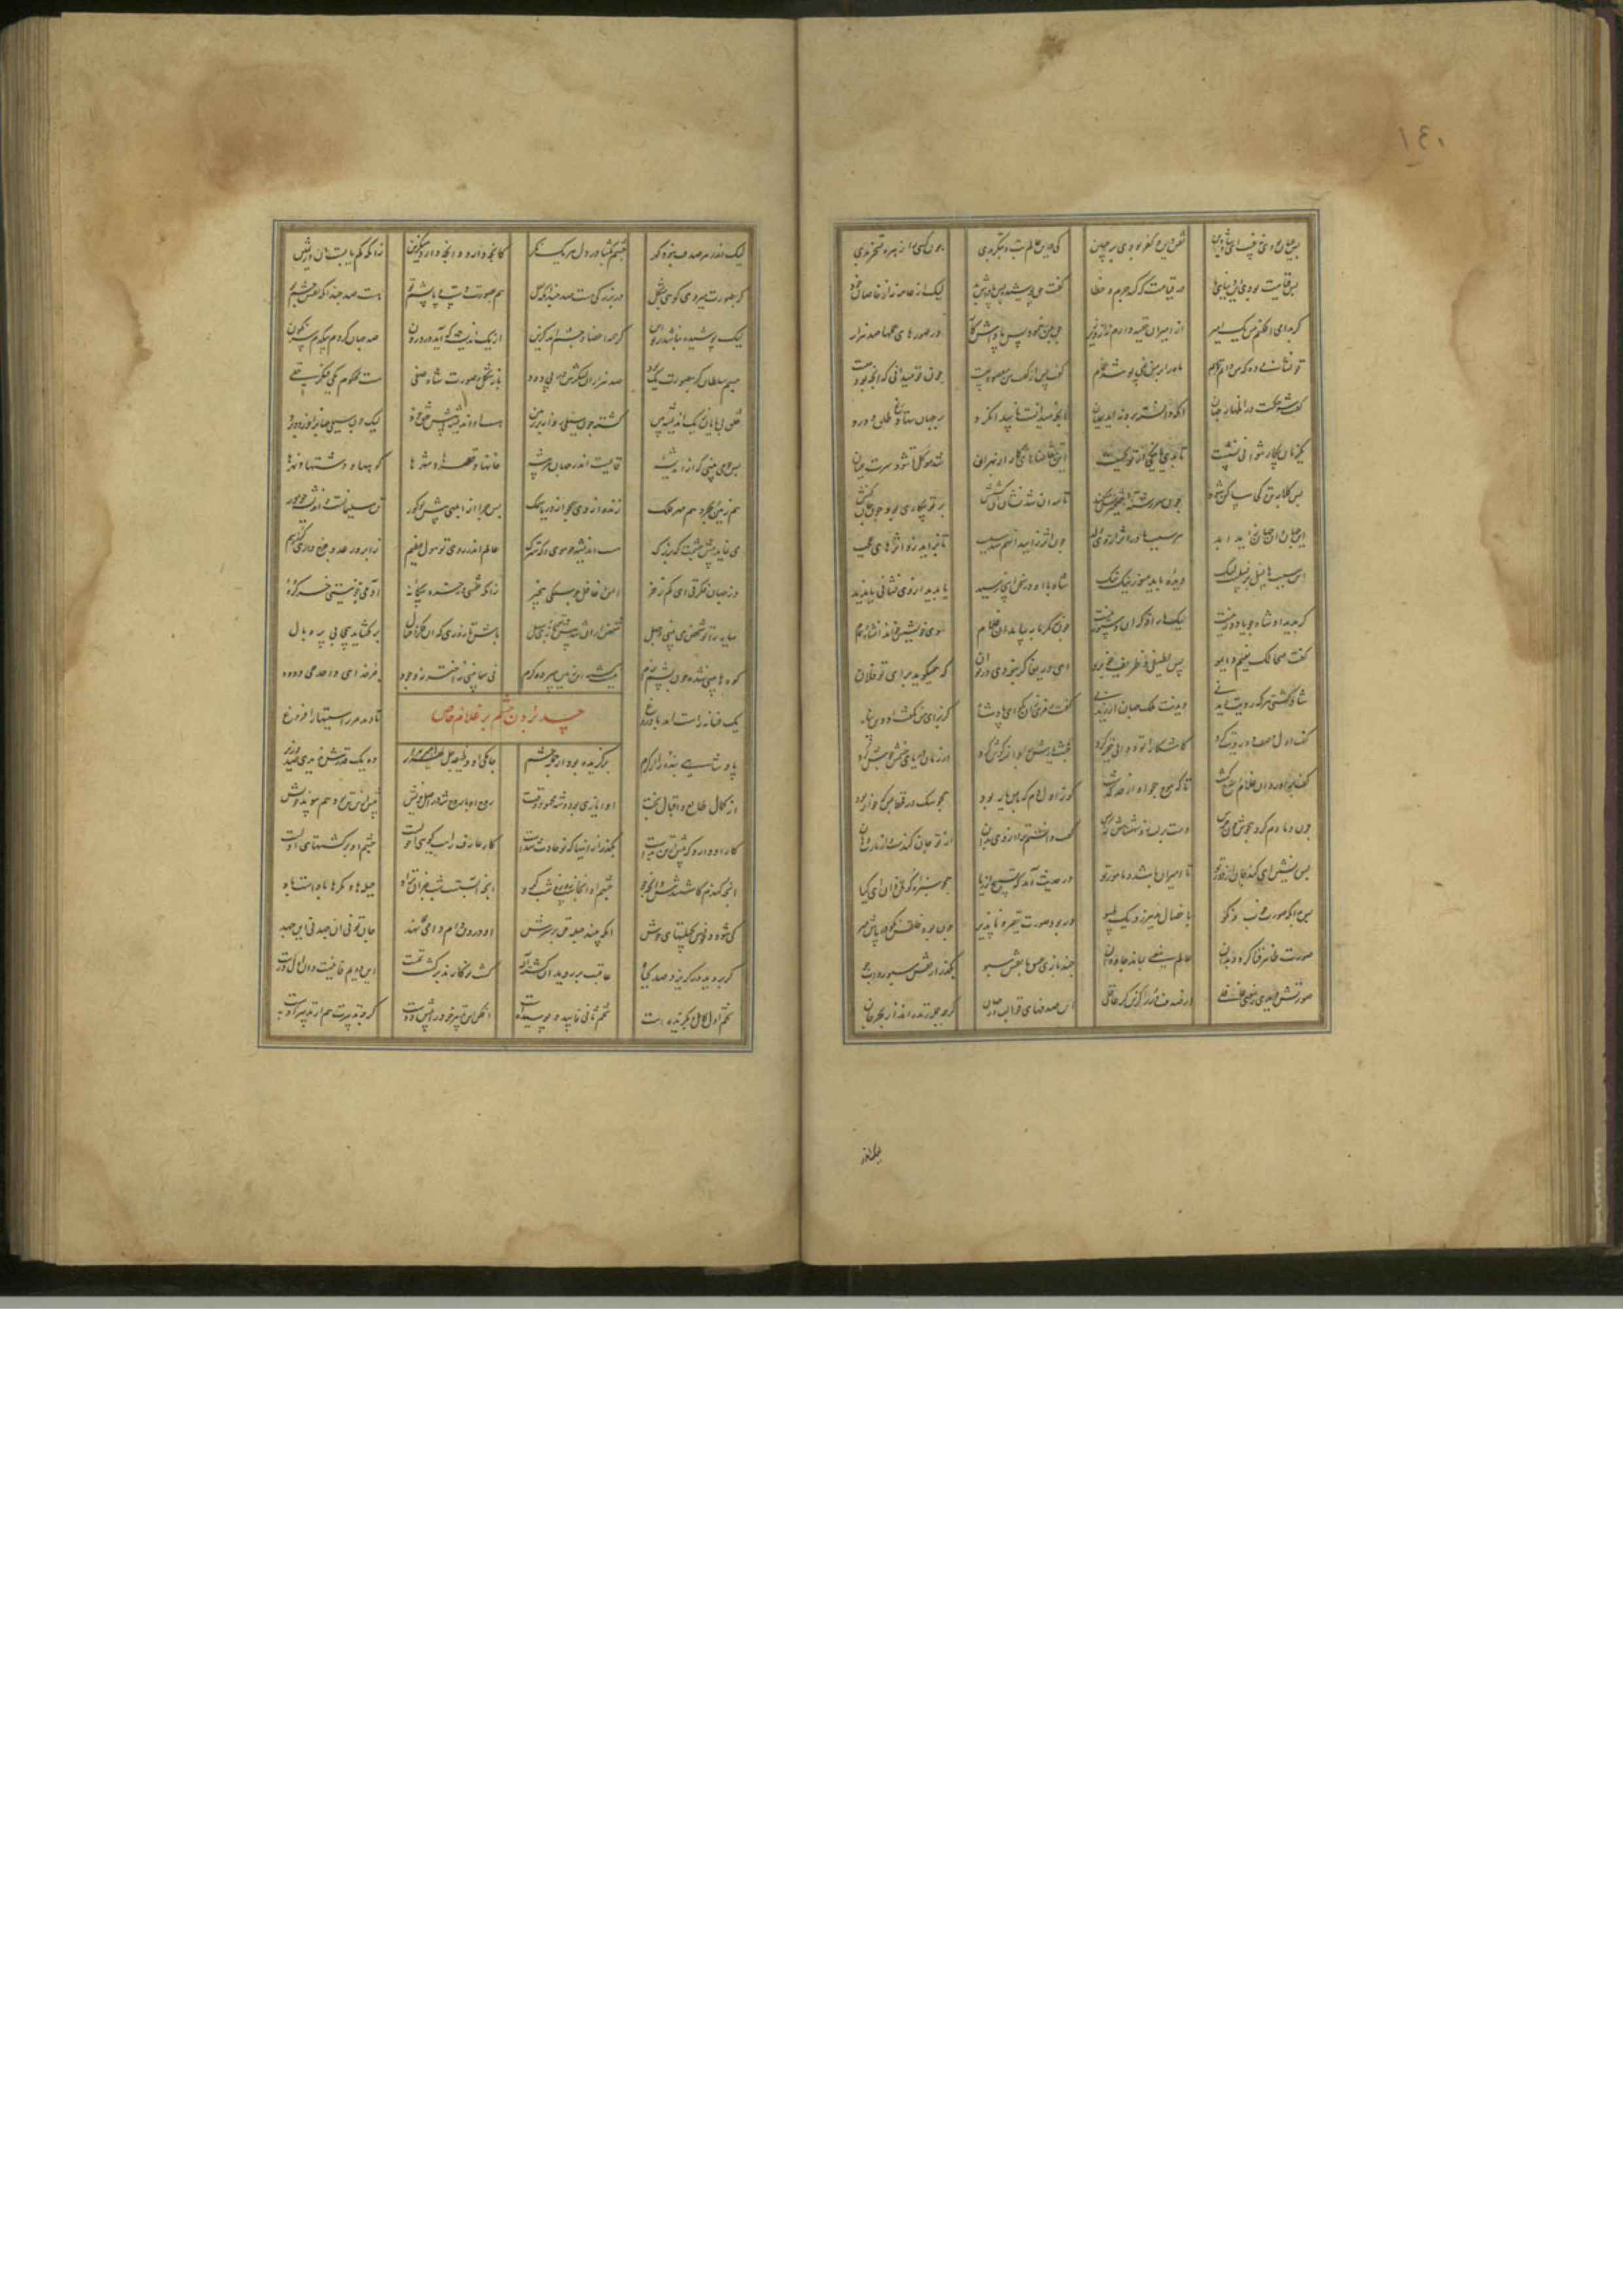 ١٤٠
پس عیان بودی نه غیب ای شاه این نقش دین و کفر بودی بر جبین کی درین عالم بت و بتگر بدی چون کسی را زهره تسخر بدی
پس قیامت بودی این دنیای ما در قیامت که کند جرم و خطا گفت شه پوشید حق پاداش بد لیک از عامه نه از خاصان خود
گر بدامی افکنم من یک امیر از امیران خفیه دارم نه از وزیر حق بمن بنمود پس پاداش کار در صورهای عملها صد هزار
تو نشانی ده که من دانم تمام ماه را بر من نمی پوشد غمام گفت پس از گفت من مقصود چیست چون تو میدانی که آنچه بود چیست
گفت شه حکمت در اظهار جهان آنکه دانسته برون آید عیان آنچه میدانست تا پیدا نکرد بر جهان ننهاد رنج طلق و درد
یک زمان بیکار نتوانی نشست تا بدی یا نیکیی از تو نجست این تقاضاهای کار از بهر آن شد موکل تا شود سرت عیان
پس کلابه تن کجا ساکن شود چون سر رشته ضمیرش میکشد تاسه آن شد نشان آن کشش بر تو بیکاری بود چون جان کنش
این جهان و آن جهان زاید ابد هر سبب مادر اثر از وی ولد چون اثر زایید آن هم شد سبب تا بزاید زو اثرهای عجب
این سببها نسل بر نسلست لیک دیده باید منور نیک نیک شاه با او در سخن اینجا رسید یا بدید از وی نشانی یا ندید
گر بدید آن شاه جویا دور نیست لیک ما را ذکر آن دستور نیست چون ز گرمابه بیامد آن غلام سوی خویشش خواند آن شاه و همام
گفت صحا لک نعیم دایم پس لطیفی و ظریف و خوب رو ای دریغا گر نبودی در تو آن که همیگوید برای تو فلان
شاد گشتی هر که رویت دیدیی دیدنت ملک جهان ارزیدیی گفت رمزی زان بگو ای پادشاه کز برای من بگفت آن دین تباه
گفت اول وصف دو روییت کرد کاشکارا تو دوایی خفیه درد خبث یارش را چو از شه گوش کرد در زمان دریای خشمش جوش کرد
کف برآورد آن غلام و سرخ گشت تا که موج هجو او از حد گذشت کو ز اول دم که با من یار بود همچو سگ در قحط بس گه خوار بود
چون دمادم کرد هجوش چون جرس دست بر لب زد شهنشاهش که بس گفت دانستم ترا از وی بدان از تو جان گندست و از یارت دهان
پس نشین ای گنده جان از دور تو تا امیر او باشد و مامور تو در حدیث آمد که تسبیح از ریا همچو سبزه گولخن دان ای کیا
پس بدان که صورت خوب و نکو با خصال بد نیرزد یک تسو ور بود صورت حقیر و ناپذیر چون بود خلقش نکو در پاش میر
صورت ظاهر فنا گردد بدان عالم معنی بماند جاودان چند بازی عشق با نقش سبو بگذر از نقش سبو رو آب جو
صورتش دیدی ز معنی غافلی از صدف دری گزین گر عاقلی این صدفهای قوالب در جهان گرچه جمله زنده اند از بحر جان
لیک اندر
لیک اندر هر صدف نبود گهر چشم بگشا در دل هر یک نگر کانچه دارد و آنچه دارد میگزین زانکه کم یابست آن در ثمین
گر بصورت میروی کوهی بشکل در بزرگی هست صد چندانکه لعل هم بصورت دست و پا و پشم تو هست صد چندانکه نقش چشم تو
لیک پوشیده نباشد بر تو این کز همه اعضا دو چشم آمد گزین از یک اندیشه که آید در درون صد جهان گردد بیکدم سرنگون
جسم سلطان گر بصورت یک بود صد هزاران لشکرش در پی دود باز شکل و صورت شاه صفی هست محکوم یکی فکر خفی
خلق بی پایان ز یک اندیشه بین گشته چون سیلی روانه بر زمین هست آن اندیشه پیش خلق خرد لیک چون سیلی جهان را خورد و برد
پس چو می بینی که از اندیشه قایمست اندر جهان هر پیشه خانها و قصرها و شهرها کوهها و دشتها و نهرها
هم زمین و بحر و هم مهر و فلک زنده از وی همچو از دریا سمک پس چرا از ابلهی پیش تو کور تن سلیمانست و اندیشه چو مور
می نماید پیش چشمت که بزرگ هست اندیشه چو موش و کوه گرگ عالم اندر چشم تو هول عظیم ز ابر و رعد و چرخ داری لرز و بیم
وز جهان فکرتی ای کم ز خر ایمن و غافل چو سنگی بیخبر زانکه نقشی وز خرد بیگانه آدمی خو نیستی خر کره
سایه را تو شخص می بینی ز جهل شخص از آن شد پیش تو بازی و سهل باش تا روزی که آن فکر و خیال بر گشاید بی حجابی پر و بال
کوهها بینی شده چون پشم نرم نیست گشته این زمین سرد و گرم نی سما بینی نه اختر نه وجود جز خدای واحد حی ودود
یک فسانه راست آمد یا دروغ تا دهد مر راستیها را فروغ
حسد بردن حشم بر غلام خاص
پادشاهی بنده را از کرم برگزیده بود از جمله حشم جامگی او وظیفه چل امیر ده یک قدرش ندیدی صد وزیر
از کمال طالع و اقبال و بخت او ایازی بود و شه محمود وقت روح او با روح شه در اصل خویش پیش ازین تن بود هم پیوند و خویش
کار او دارد که پیش از تن بدست بگذر از اینها که نو حادث شدست کار عارف راست کو نه احولست چشم او بر کشتهای اولست
آنچه گندم کاشتندش و آنچه جو چشم او آنجاست روز و شب گرو آنچه آبستست شب جز آن نزاد حیله ها و مکرها بادست باد
کی شود دل خوش بحیلتهای آنکه بیند حیله حق بر سرش او درون دام دامی می نهد جان تو نی آن جهد نی این جهد
گر بروید ور بریزد صد گیاه عاقبت بر روید آن کشته اله کشت نو کارند بر کشت نخست این دویم فانیست و آن اول درست
تخم اول کامل و بگزیده است تخم ثانی فاسد و پوسیده است افکن این تدبیر خود را پیش دوست گرچه تدبیرت هم از تدبیر اوست